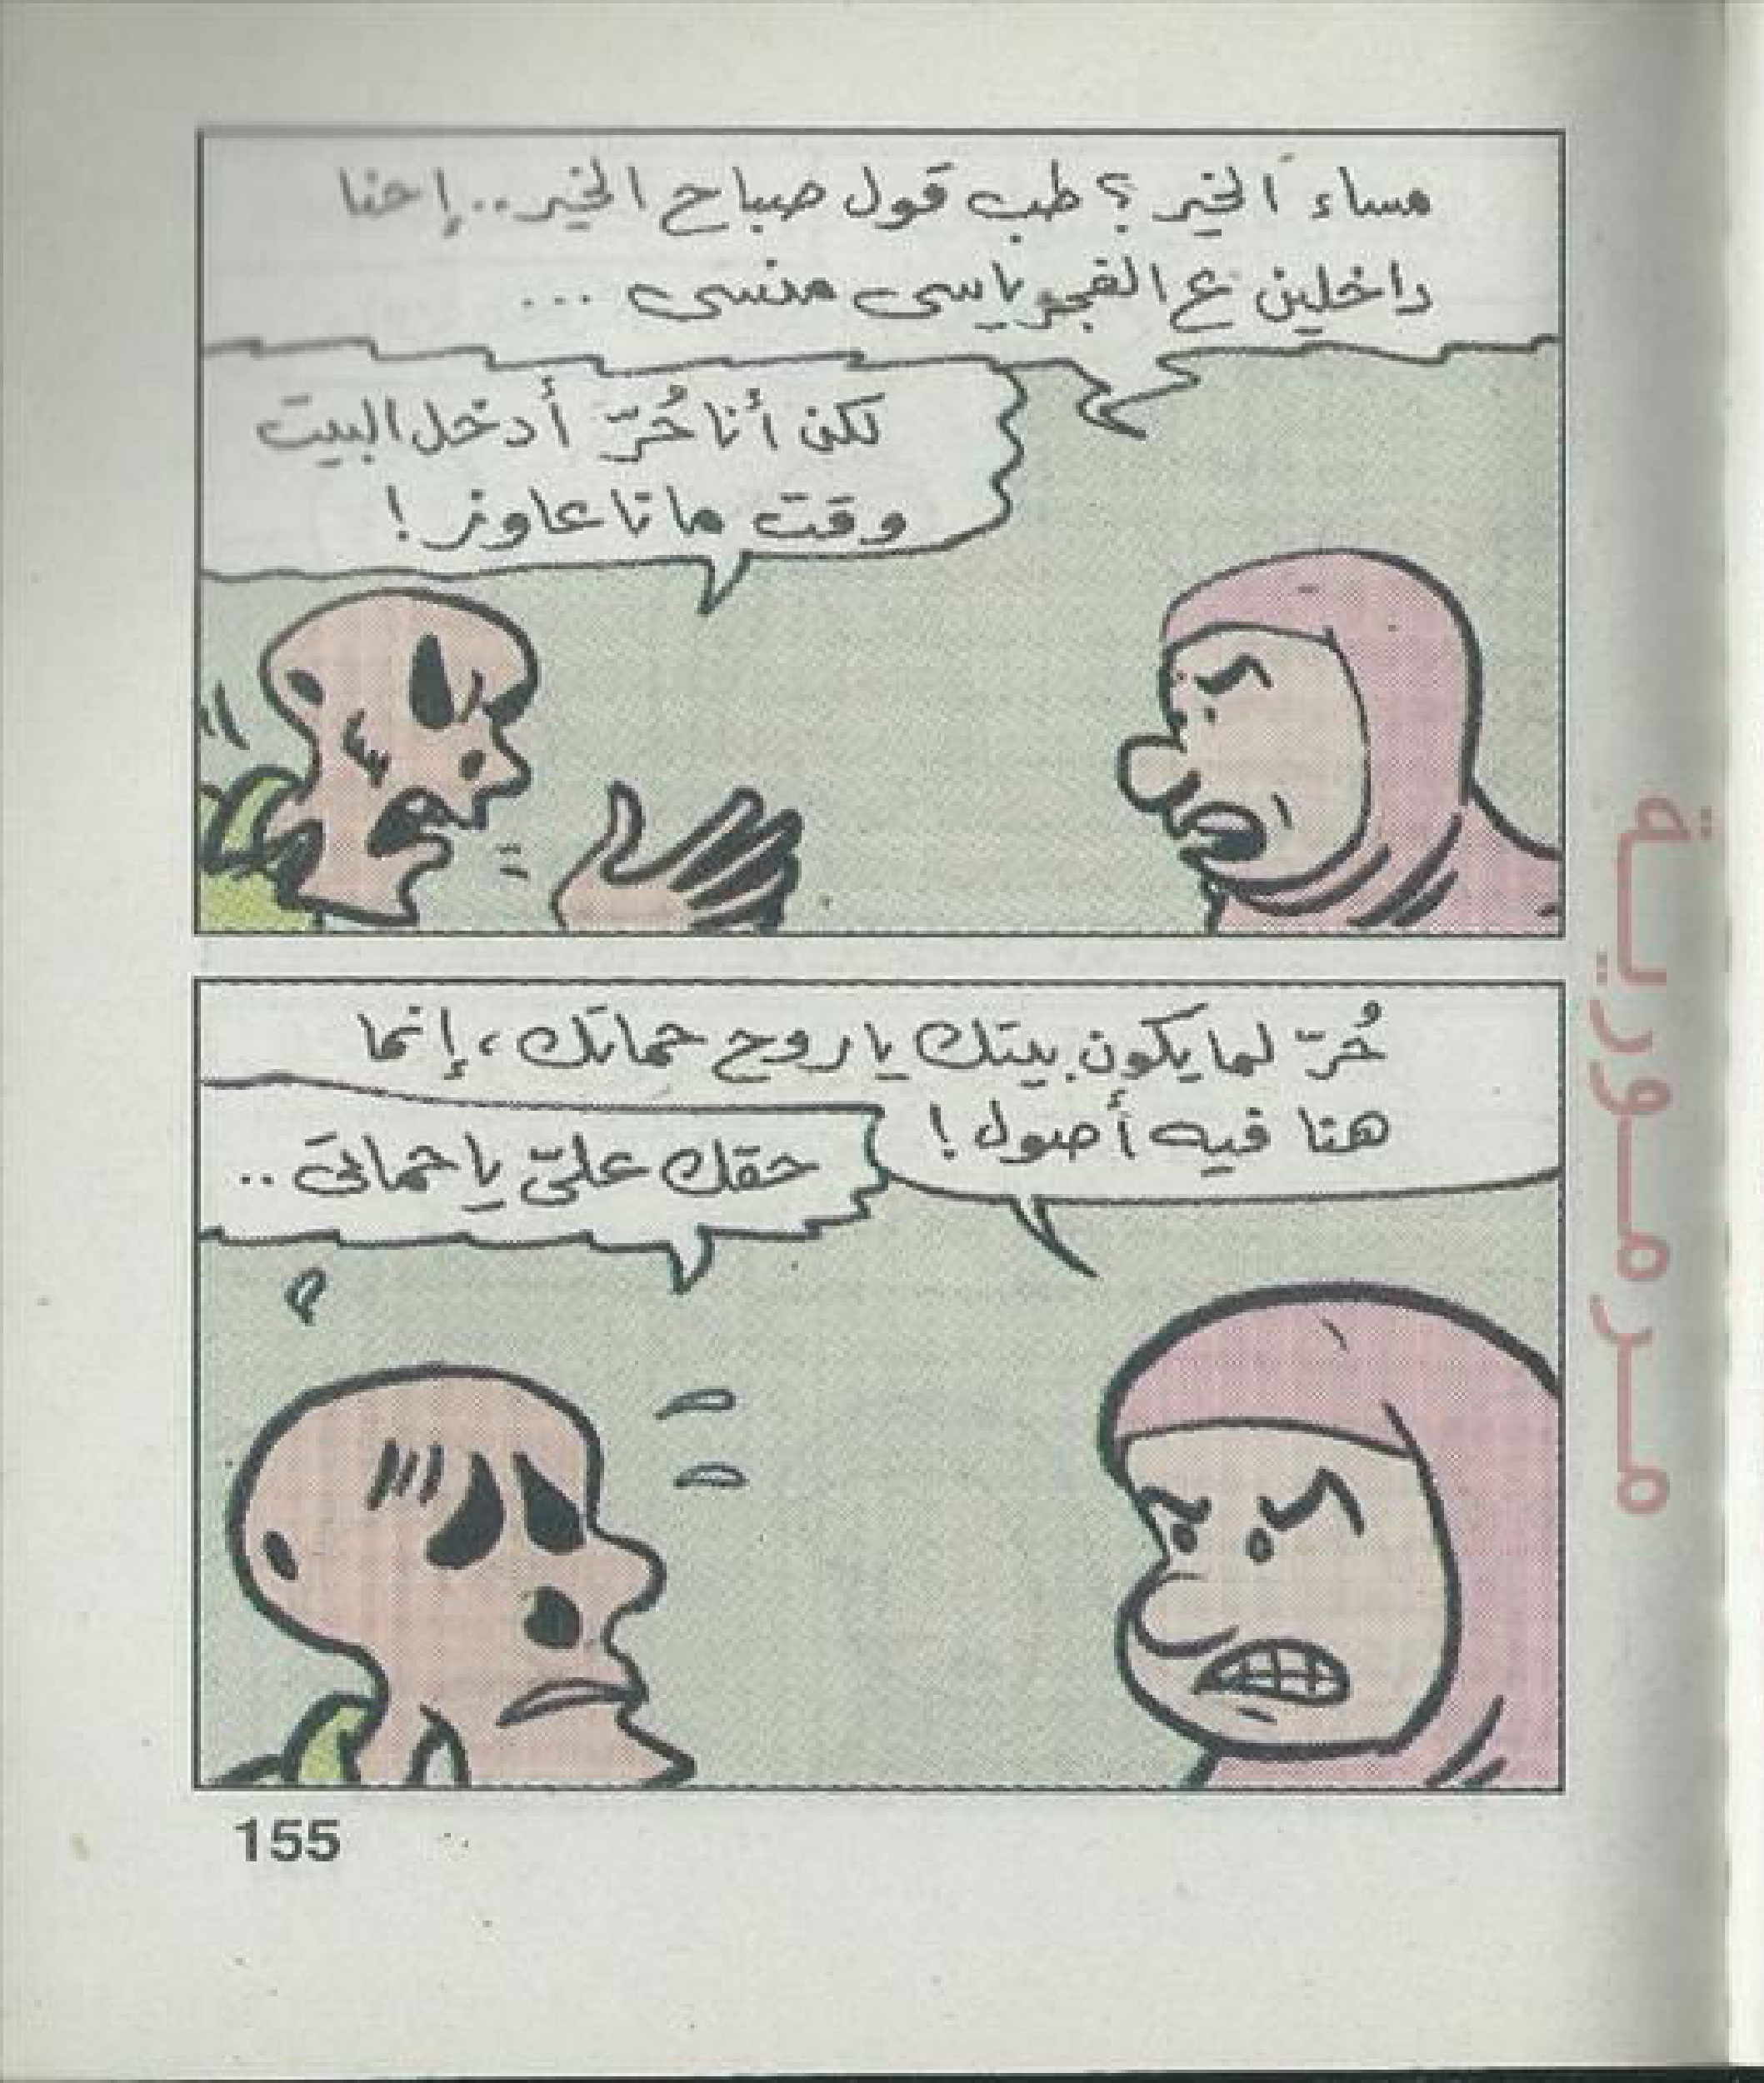 مساء الخير ؟ طب قول صباح الخير .. إحنا
داخلين ع الفجر ياسى منسى ...
لكن أنا حُرّ أدخل البيت
وقت مانا عاوز !
حُرّ لما يكون بيتك يا روح حماتك ، إنما
هنا فيه أصول !
حقك علىّ يا حماتى ..
155
مرمورية